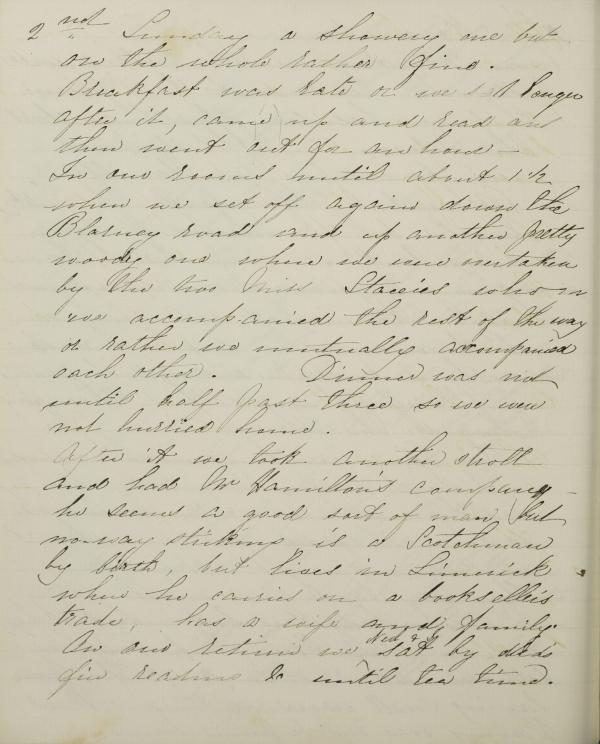 2nd Sunday a showery one but
on the whole rather fine.
Breakfast was late or we sat longer
after it, came up and read an
then went out for an hour –
In our rooms until about 1 1/2
when we set off again down the
Blarney road and up another pretty
woody one where we were overtaken
by the two Miss Stacies who
we accompanied the rest of the way
or rather we mutually accompanied
each other. Dinner was not
until half past three so we were
not hurried home.
After it we took another stroll
and had Mr Hamilton's company –
he seems a good sort of man but
no-way striking is a Scotchman
by birth, but lives in Limerick
where he carries on a booksellers
trade, has a wife and family.
On our return we sat by
fire reading &c until tea time.